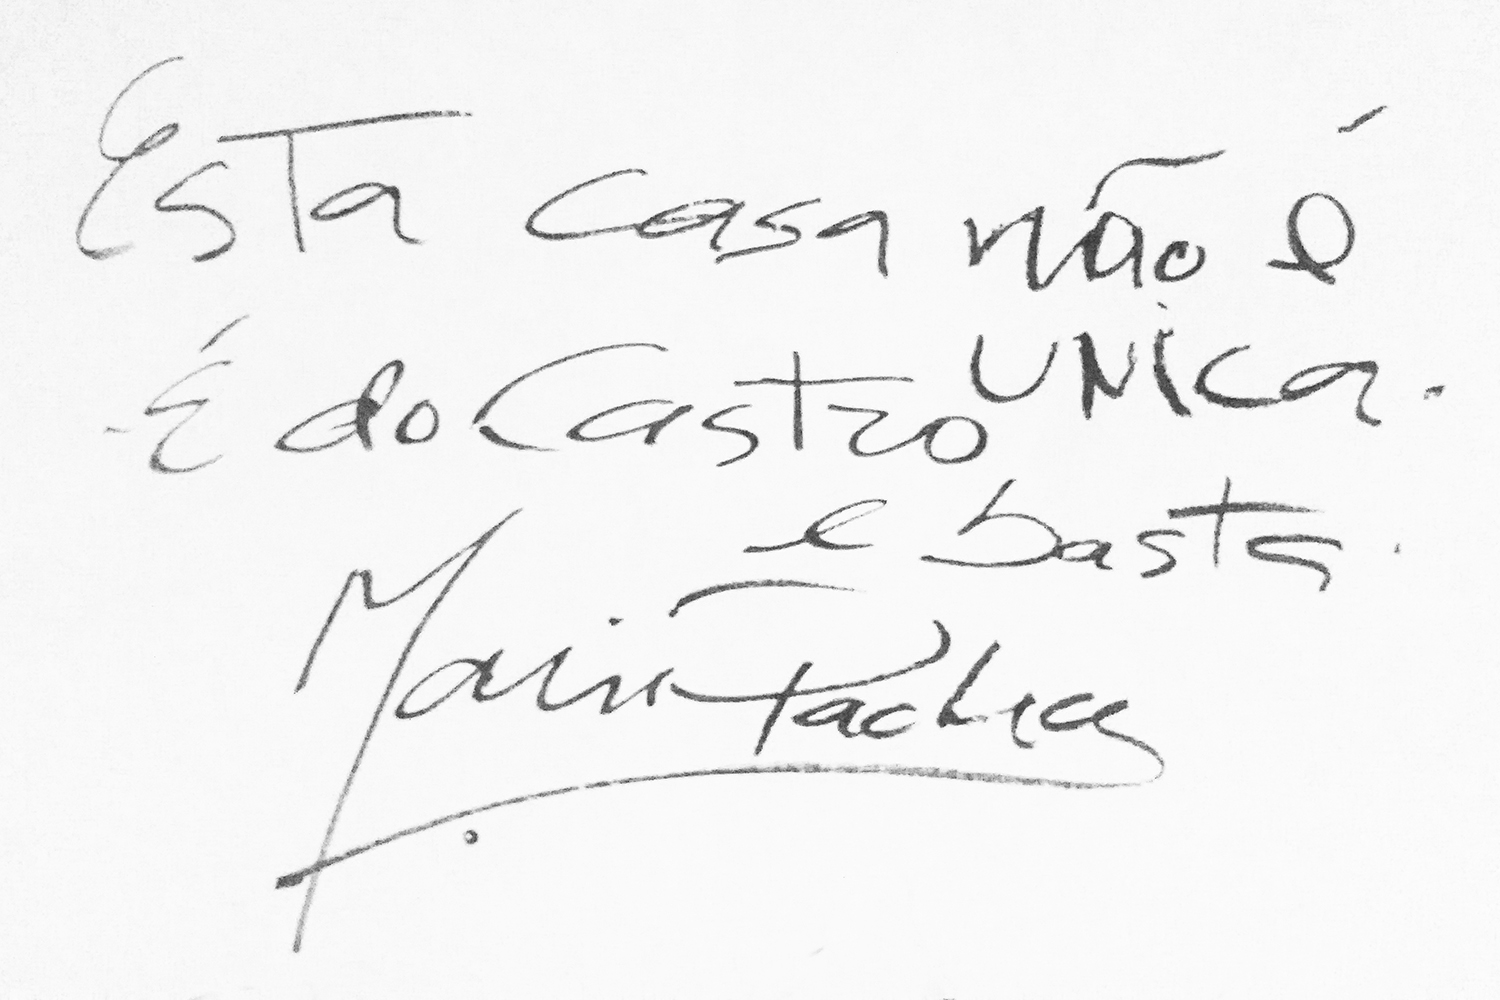 Esta casa não é
UNICA.
É do Castro
e basta.
Maria Pacheco